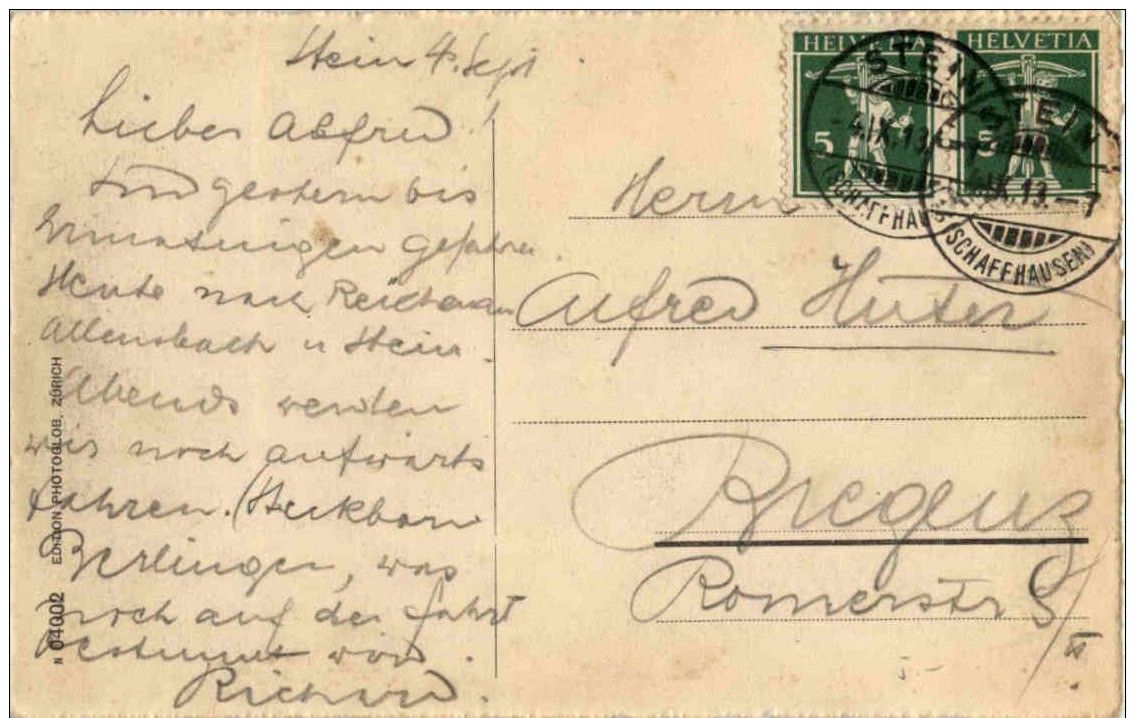 Stein 4. Sept
Lieber Alfred!
Sind gestern bis
Ermatingen gefahren.
Heute nach Reichenau
Allensbach u Stein.
Abends werden
wir noch aufwärts
fahren. (Steckborn
Berlingen, was
noch auf der Fahrt
bestimmt wird.
Richard.
N 04002 EDITION PHOTOGLOB, ZÜRICH
HELVETIA HELVETIA
5 5
STEIN
-4.IX.13.
(SCHAFFHAUSEN)
STEIN
IX.13.-7
(SCHAFFHAUSEN)
Herrn
Alfred Huter
Bregenz
Romerstr 9/
II